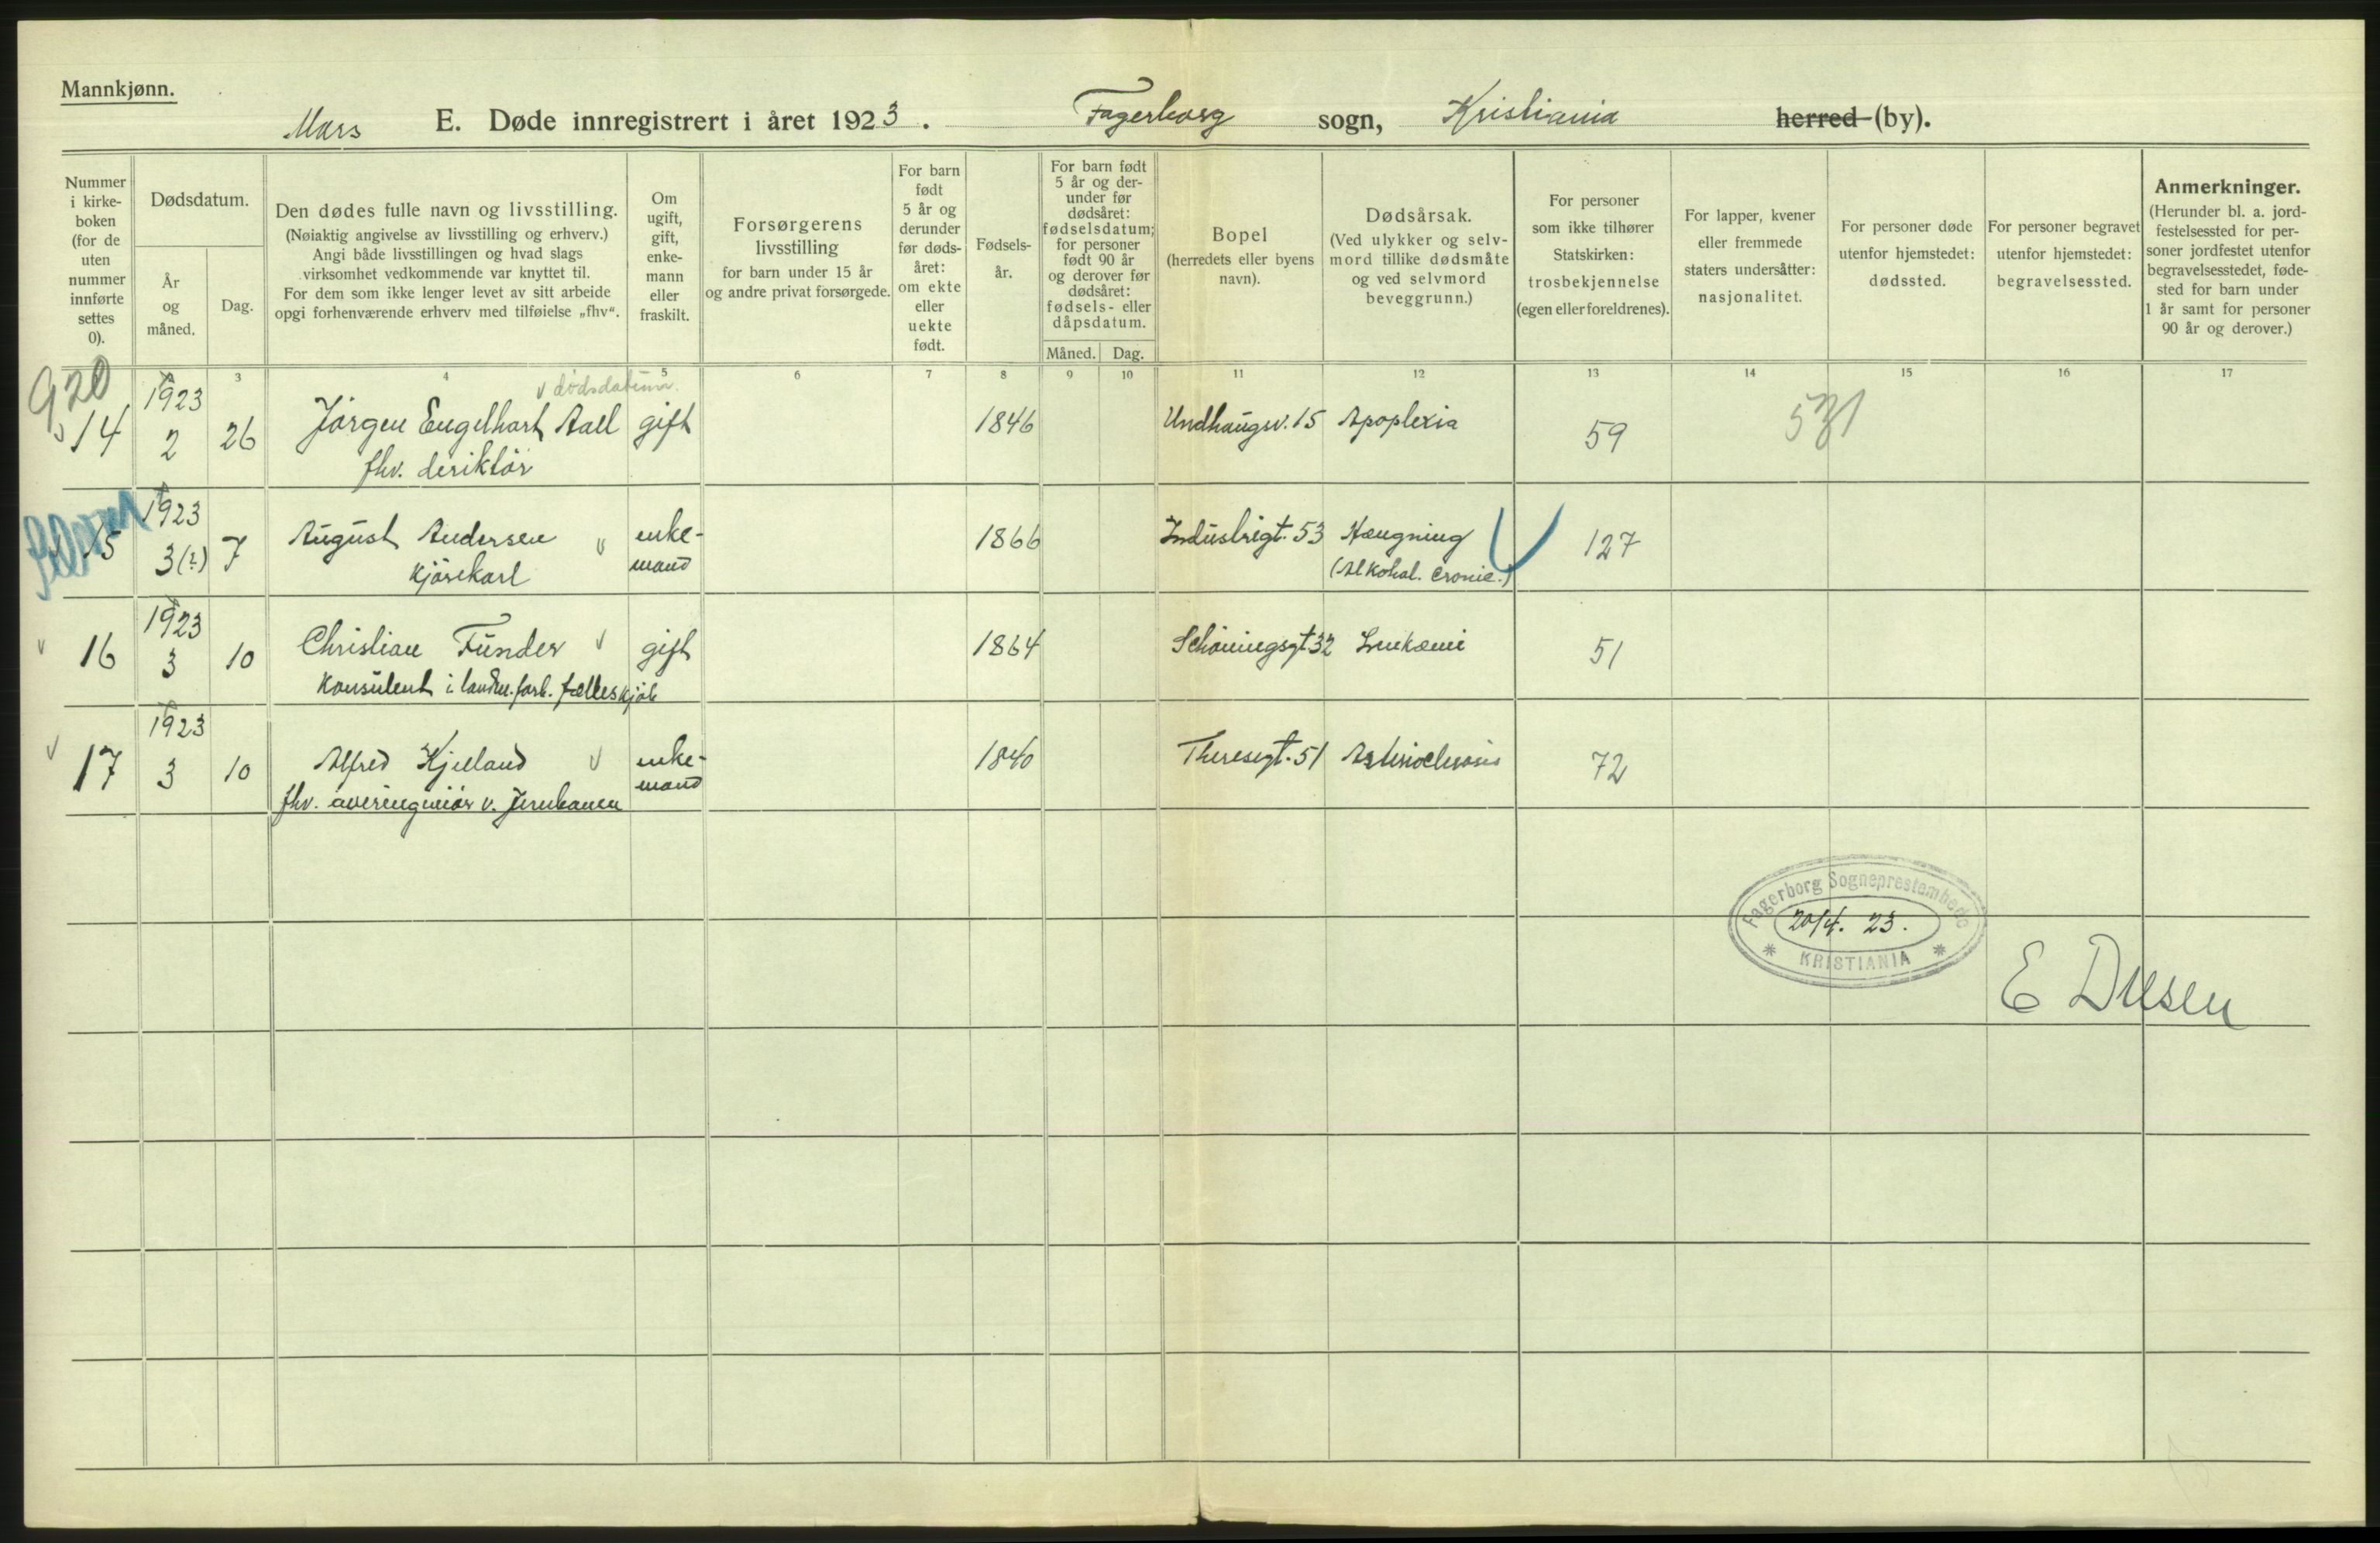 Mannkjønn.
Mars E. Døde innregistrert i året 1923. Fagerborg sogn, Kristiania herred (by).
Nummer i kirke-boken (for de uten nummer innførte settes 0).
Dødsdatum.
År og måned.
Dag.
Den dødes fulle navn og livsstilling.
(Nøiaktig angivelse av livsstilling og erhverv.)
Angi både livsstillingen og hvad slags
virksomhet vedkommende var knyttet til.
For dem som ikke lenger levet av sitt arbeide
opgi forhenværende erhverv med tilføielse „fhv“.
Om ugift, gift, enke-mann eller fraskilt.
Forsørgerens
livsstilling
for barn under 15 år
og andre privat forsørgede.
For barn født 5 år og derunder før døds-året: om ekte eller uekte født.
Fødsels-år.
For barn født 5 år og der-under før dødsåret: fødselsdatum; for personer født 90 år og derover før dødsåret: fødsels- eller dåpsdatum.
Måned. Dag.
Bopel
(herredets eller byens
navn).
Dødsårsak.
(Ved ulykker og selv-
mord tillike dødsmåte
og ved selvmord
beveggrunn.)
For personer
som ikke tilhører
Statskirken:
trosbekjennelse
(egen eller foreldrenes).
For lapper, kvener
eller fremmede
staters undersåtter:
nasjonalitet.
For personer døde
utenfor hjemstedet:
dødssted.
For personer begravet
utenfor hjemstedet:
begravelsessted.
Anmerkninger.
(Herunder bl. a. jord-
festelsessted for per-
soner jordfestet utenfor
begravelsesstedet, føde-
sted for barn under
1 år samt for personer
90 år og derover.)
3 4 5 6 7 8 9 10 11 12 13 14 15 16 17
920
v dødsdatum.
14 1923 2 26 Jørgen Engelhart Aall gift 1846 Undhaugsv. 15 Apoplexia 59 531
fhv. deriktør
15 1923 3(?) 7 August Andersen v enke- 1866 Industrigt. 53 Hængning 127
kjørekarl mand (Alkohol. cronic.)
v 16 1923 3 10 Christian Funder v gift 1864 Schøningsgt 32 Leukæmi 51
Konsulent i landm. forb. fælleskjøb
v 17 1923 3 10 Alfred Kjelland v enke- 1840 Theresegt. 51 72
fhv. overingeniør v. Jernbanen mand
Fagerborg Sogneprestembede
20/4. 23.
* KRISTIANIA *
E